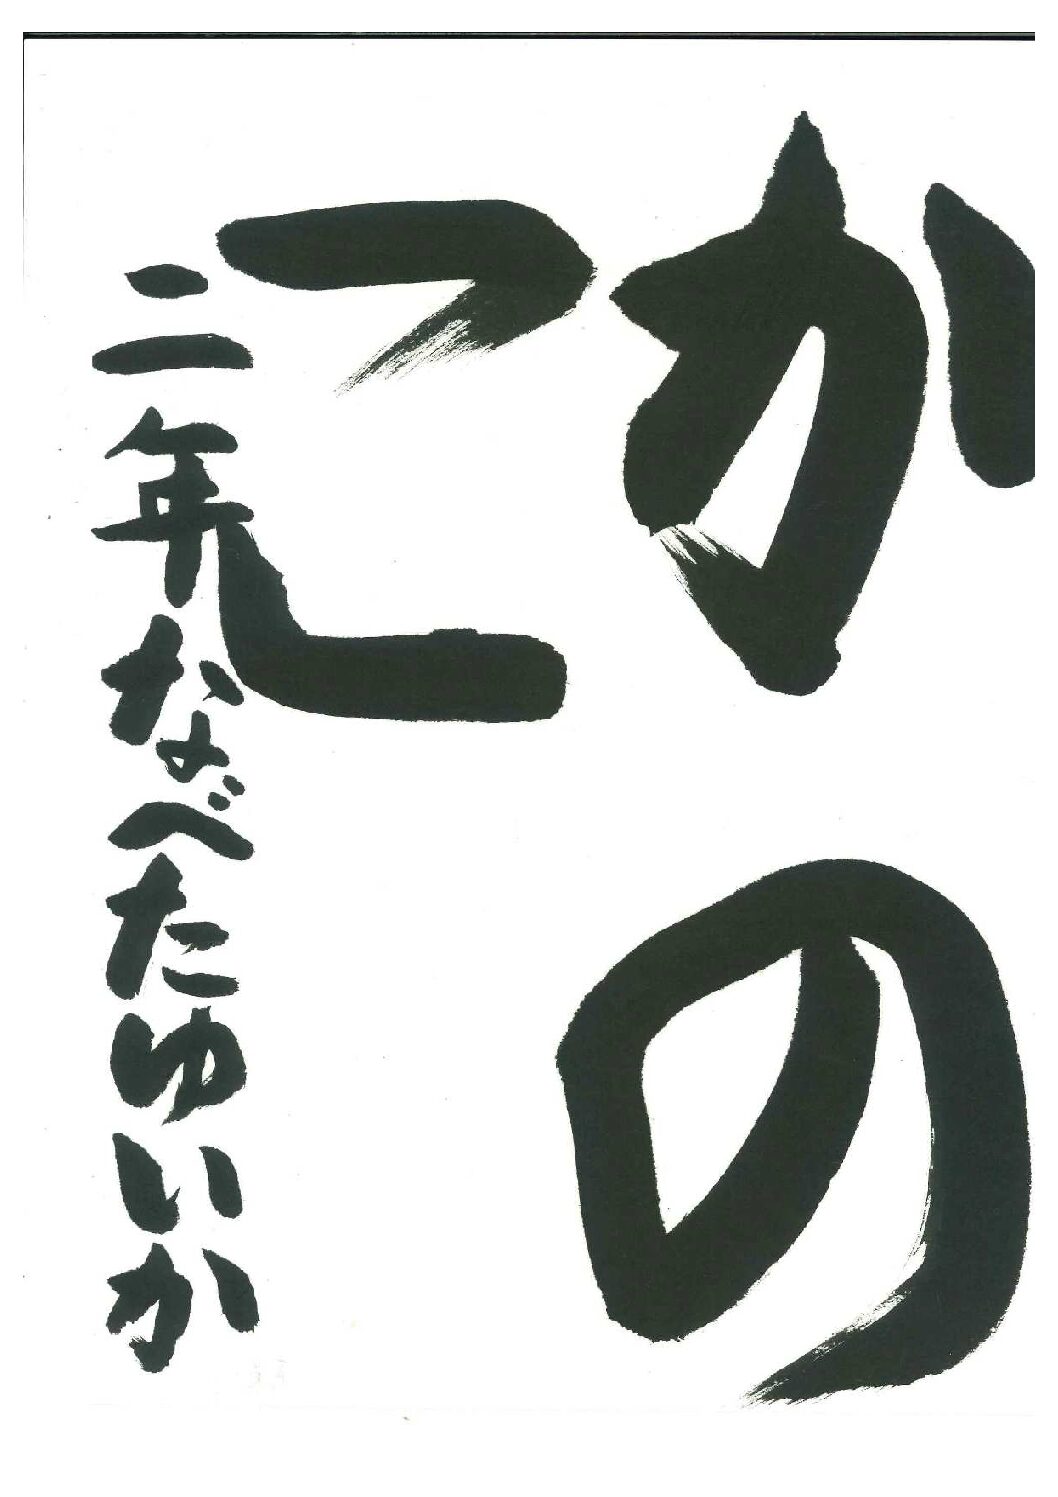 かの
こ
二年なべたゆいか